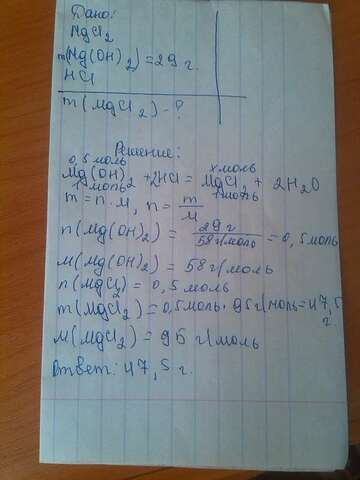 Дано:
MgCl2
m(Mg(OH)2)=29 г.
HCl
m(MgCl2)-?
Решение:
0,5 моль х моль
Mg(OH)2 + 2HCl = MgCl2 + 2H2O
1 моль 1 моль
m = n·M, n = m/M
n(Mg(OH)2) = 29 г/58 г/моль = 0,5 моль
M(Mg(OH)2) = 58 г/моль
n(MgCl2) = 0,5 моль
m(MgCl2) = 0,5 моль · 95 г/моль = 47,5
г.
M(MgCl2) = 95 г/моль
Ответ: 47,5 г.